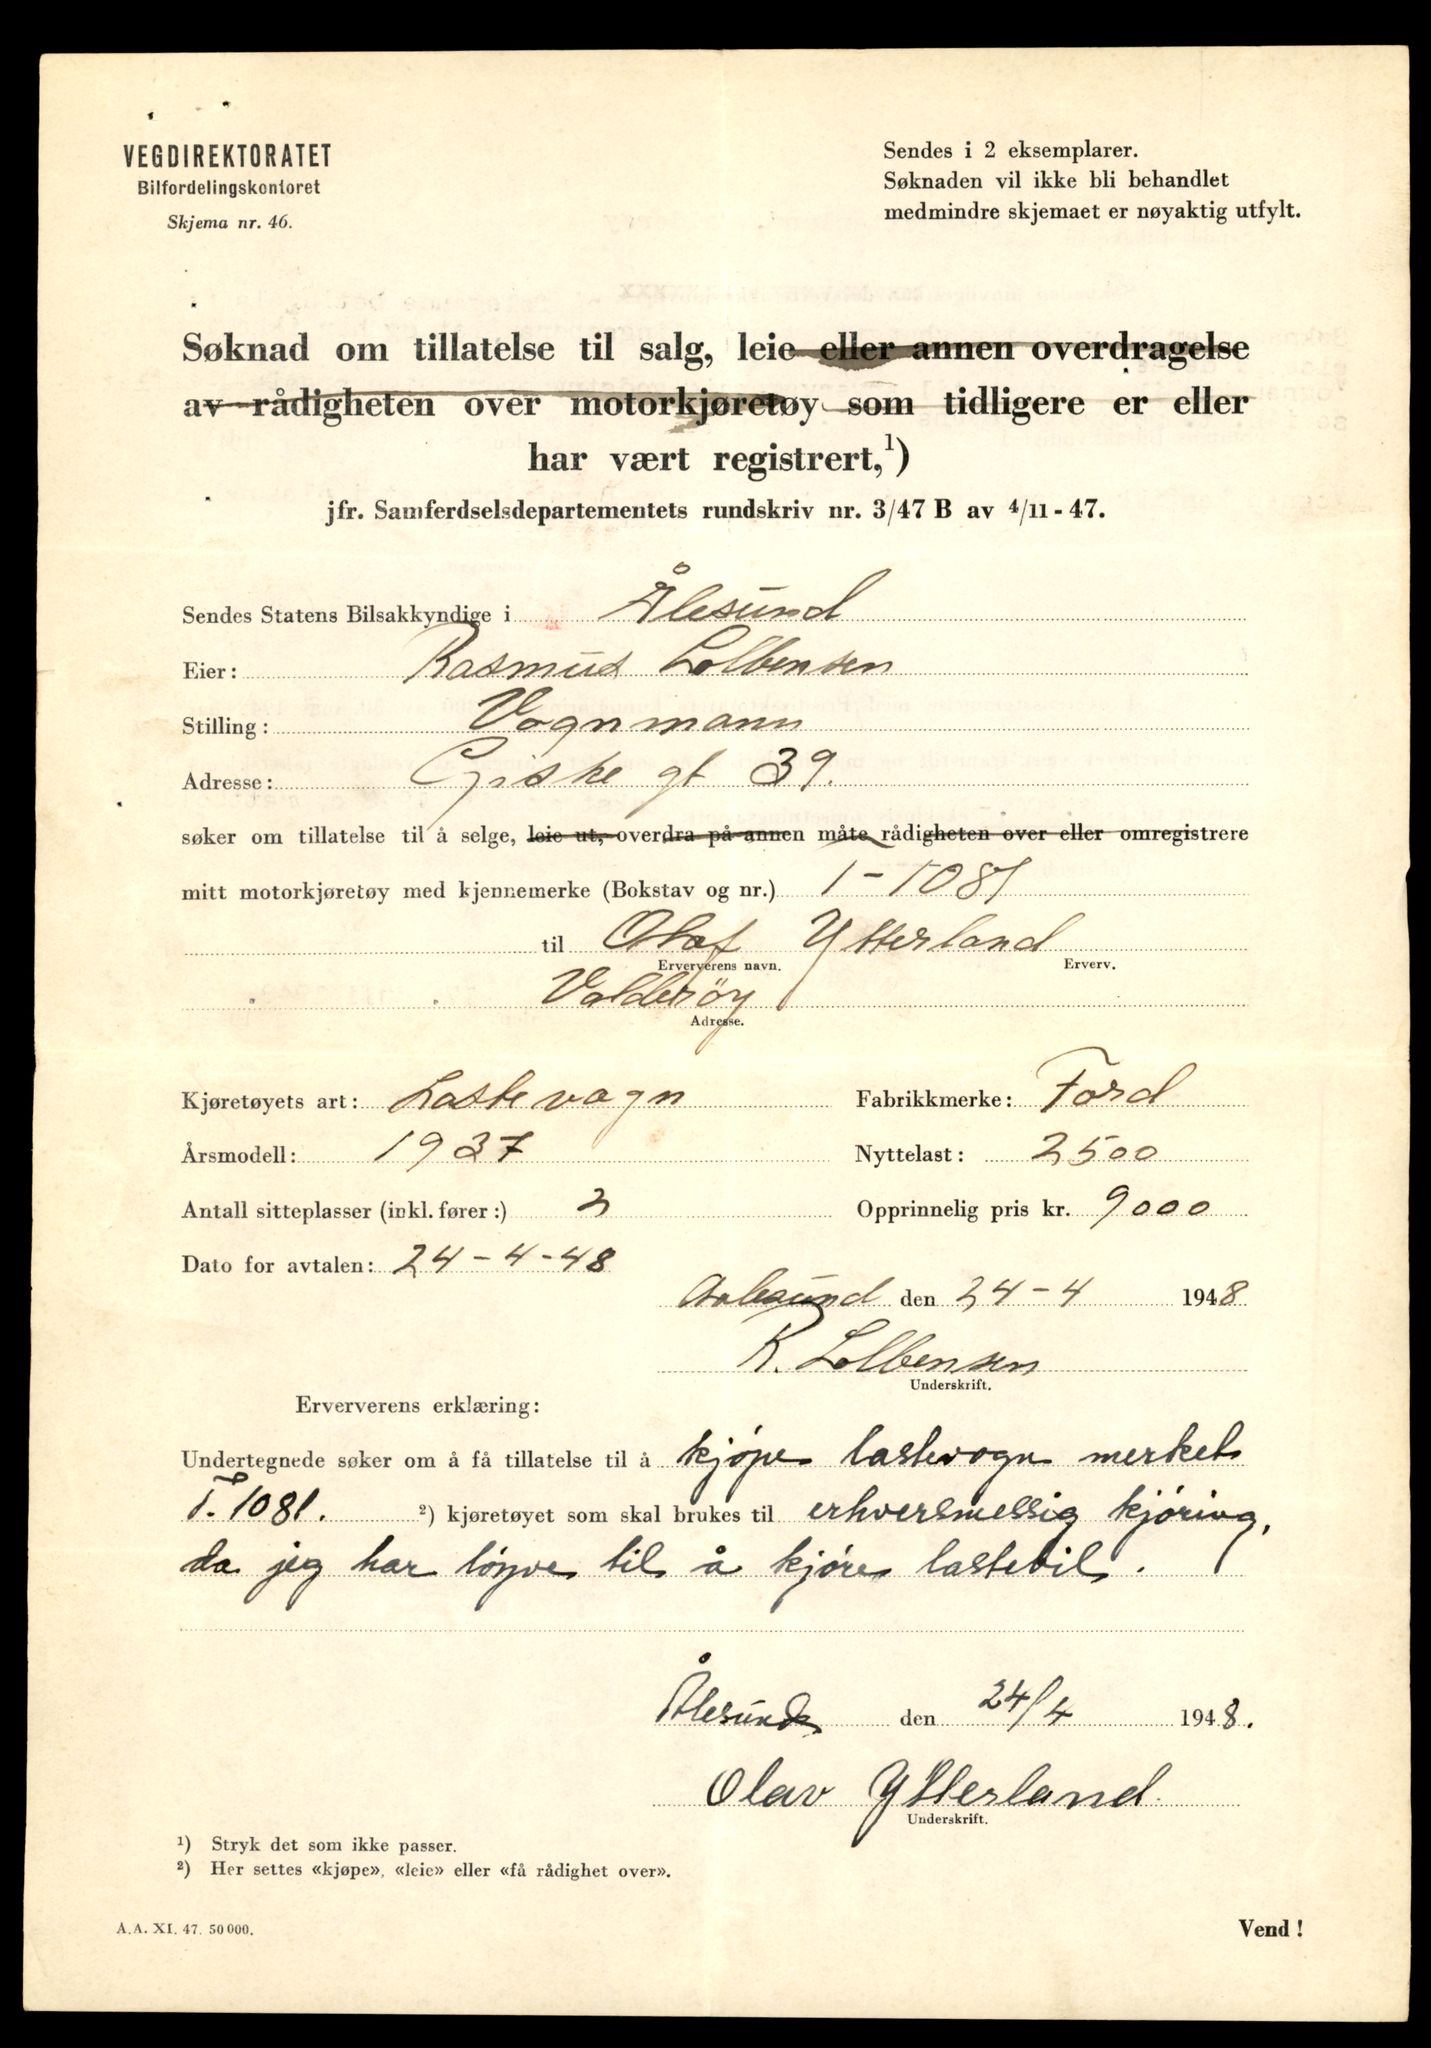 VEGDIREKTORATET
Bilfordelingskontoret
Skjema nr. 46.
Sendes i 2 eksemplarer.
Søknaden vil ikke bli behandlet
medmindre skjemaet er nøyaktig utfylt.
Søknad om tillatelse til salg, leie eller annen overdragelse
av rådigheten over motorkjøretøy som tidligere er eller
har vært registrert,¹)
jfr. Samferdselsdepartementets rundskriv nr. 3/47 B av 4/11-47.
Sendes Statens Bilsakkyndige i Ålesund
Eier: Rasmus Lolbensen
Stilling: Vognmann
Adresse: Giske gt 39.
søker om tillatelse til å selge, leie ut, overdra på annen måte rådigheten over eller omregistrere
mitt motorkjøretøy med kjennemerke (Bokstav og nr.) T-1081
til Olaf Ytterland
Erververens navn. Erverv.
Valderøy
Adresse.
Kjøretøyets art: Lastevogn Fabrikkmerke: Ford
Årsmodell: 1937 Nyttelast: 2500
Antall sitteplasser (inkl. fører:) 2 Opprinnelig pris kr. 9000
Dato for avtalen: 24-4-48
Aalesund den 24-4 1948
R. Lolbensen
Underskrift.
Erververens erklæring:
Undertegnede søker om å få tillatelse til å kjøpe lastevogn merket
T. 1081. ²) kjøretøyet som skal brukes til erhversmessig kjøring,
da jeg har løyve til å kjøre lastebil.
Ålesund den 24/4 1948.
Olav Ytterland.
Underskrift.
¹) Stryk det som ikke passer.
²) Her settes «kjøpe», «leie» eller «få rådighet over».
A.A. XI. 47. 50 000.
Vend!